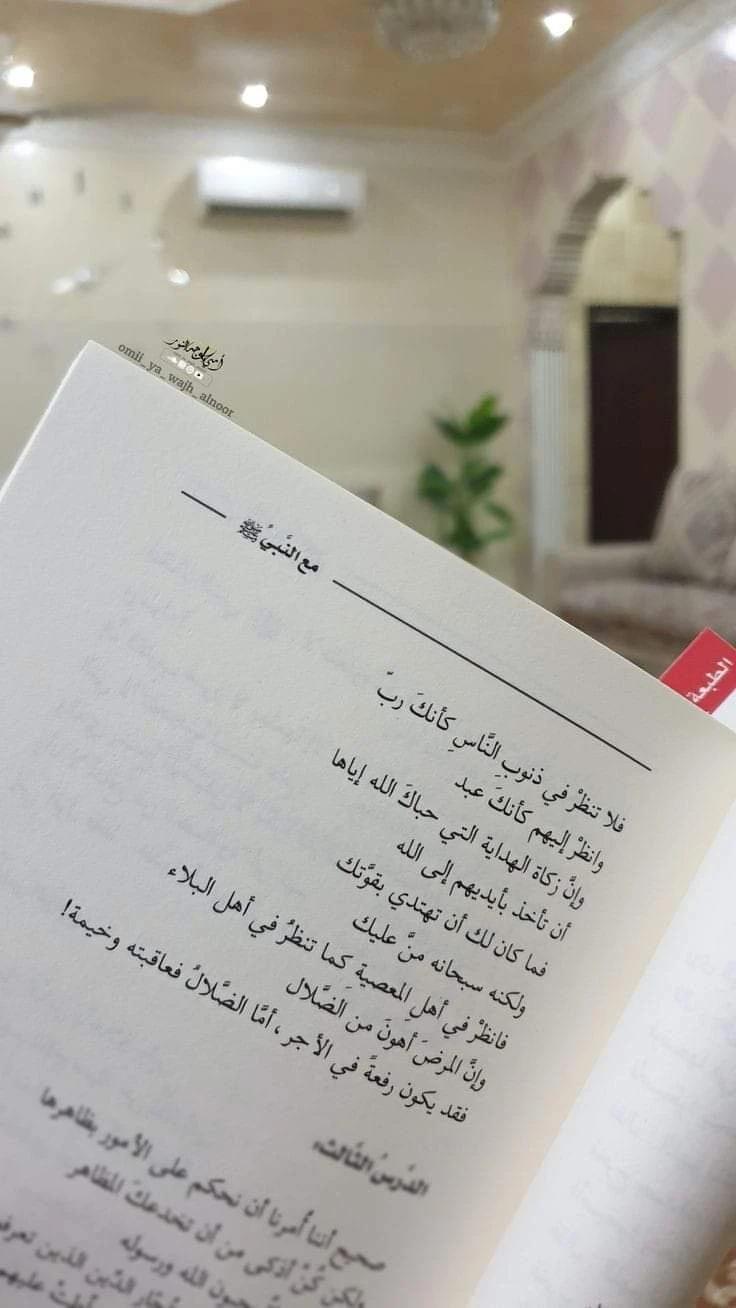 omii_ya_wajh_alnoor
مع النَّبيِّ ﷺ
الطبعة
فلا تنظرْ في ذنوبِ النَّاسِ كأنكَ ربّ
وانظرْ إليهم كأنكَ عبد
وإنَّ زكاة الهداية التي حباكَ الله إياها
أن تأخذ بأيديهم إلى الله
فما كان لك أن تهتدي بقوَّتك
ولكنه سبحانه منَّ عليك
فانظرْ في أهلِ المعصيةِ كما تنظرُ في أهل البلاء
وإنَّ المرضَ أهونَ من الضَّلال
فقد يكون رفعةً في الأجر، أمَّا الضَّلالُ فعاقبته وخيمة!
الدَّرسُ الثَّالث:
صحيح أننا أُمرنا أن نحكم على الأمور بظاهرها
ولكن كُنْ أذكى من أن تخدعكَ المظاهر
الله ورسوله
الدِّين الذين